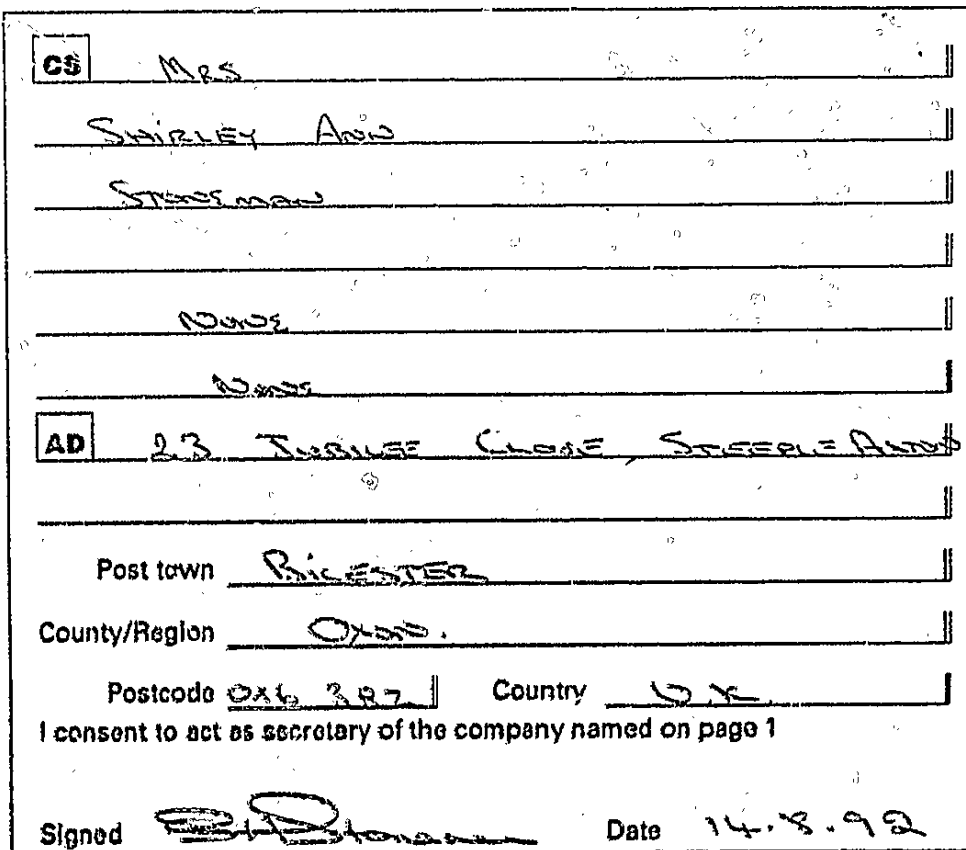 CS MRS
SHIRLEY ANN
STONEMAN
NONE
NONE
AD 23 JUBILEE CLOSE, STEEPLE ASTON
Post town BICESTER
County/Region OXON.
Postcode OX6 Country U.K.
I consent to act as secretary of the company named on page 1
Signed Stoneman Date 14.8.92